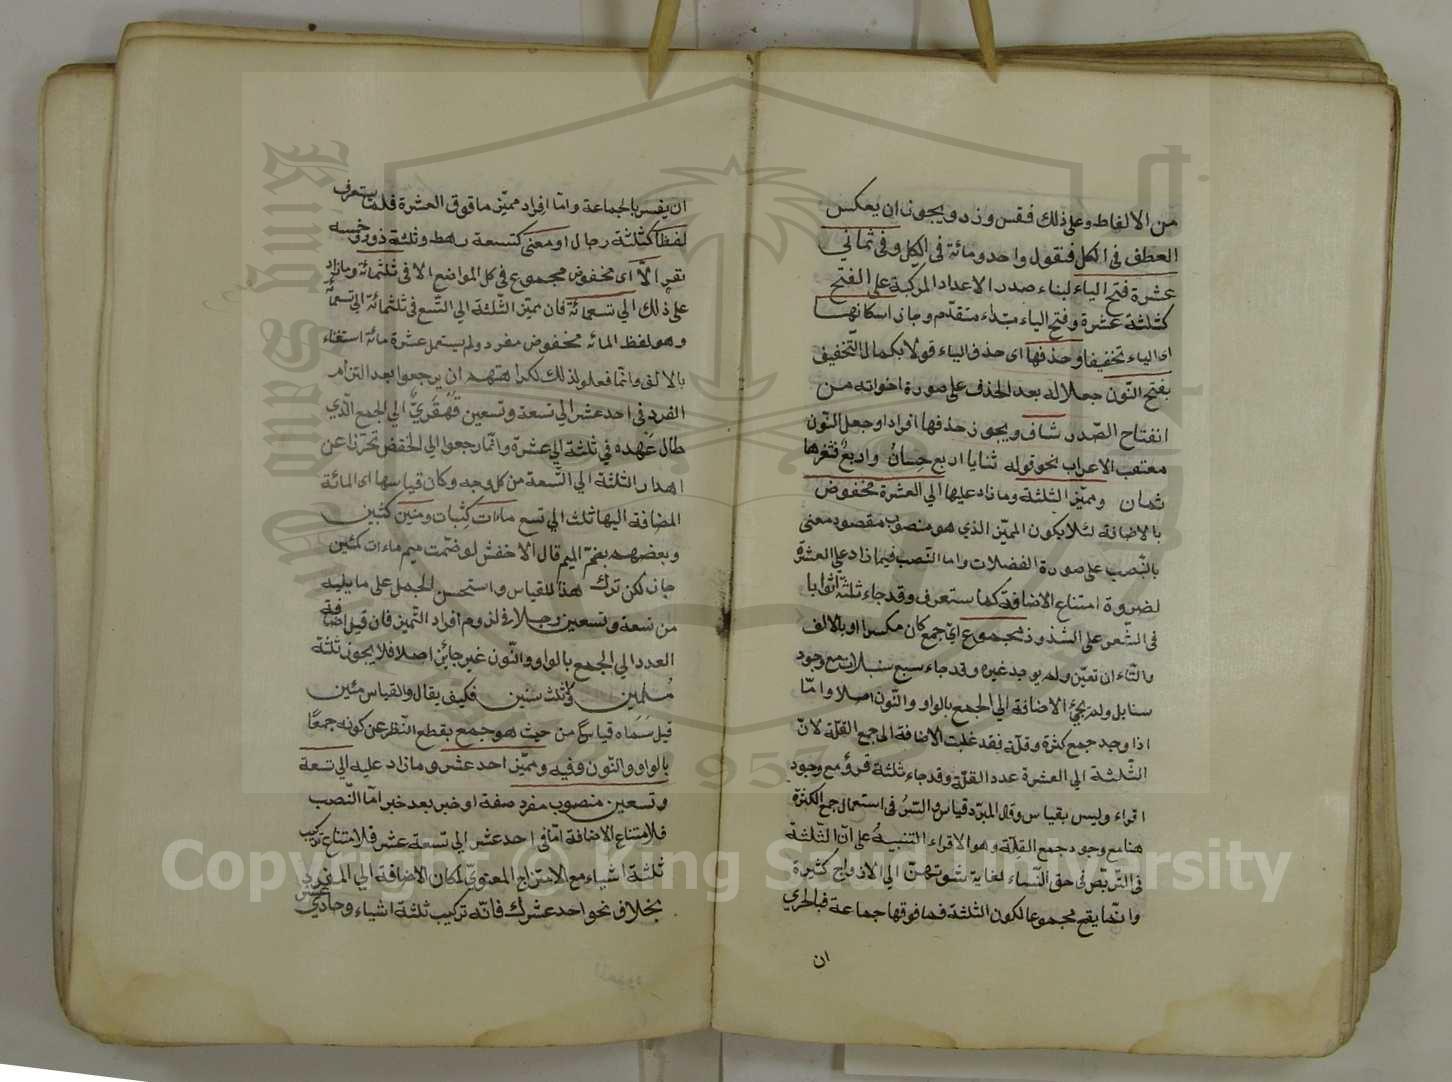 من الالفاظ وعلى ذلك فقس وزد ويجوز ان يعكس
العطف فى الكل فنقول واحد ومائة فى الكل وفى ثمانى
عشرة فتح الياء لبناء صدر الاعداد المركبة على الفتح
كثلثة عشرة وفتح الياء مبتداء متقدم وجاز اسكانها
اى الياء تخفيفا وحذفها اى حذف الياء قولا بكمال التخفيف
بفتح النّون جعلا له بعد الحذف على صورة اخواته من
انفتاح الصّدر شاف ويجوز حذفها افراد او جعل النّون
معتقب الاعراب نحو قوله ثنايا اربع حسانُ واربعٌ فثغرها
ثمان ومميّز الثلثة وما زاد عليها الى العشرة مخفوض
بالاضافة لئلا يكون المميّز الذى هو منصوب مقصود معنى
بالنّصب على صورة الفضلات واما النّصب فيما زاد على العشرة
لضرورة امتناع الاضافة كما ستعرف وقد جاء ثلثة اثوابا
فى الشّعر على الشذوذ مجموع اىّ جمع كان مكسرا او بالالف
والتّاء ان تعيّن ولم يوجد غيره وقد جاء سبع سنبلات مع وجود
سنابل ولم يجئ الاضافة الى الجمع بالواو والنّون اصلا وامّا
اذا وجد جمع كثرة وقلّة فقد غلبت الاضافة الى جمع القلّة لانّ
الثّلثة الى العشرة عدد القلّة وقد جاء ثلثة قروء مع وجود
اقراء وليس بقياس وقال المبرّد قياس والسّرّ فى استعمال جمع الكثرة
هنا مع وجود جمع القلّة وهو الاقراء التنبيهُ على انّ الثّلثة
فى التّربّص فى حق النّساء لغاية شوقهنّ الى الازواج كثيرة
وانّما يقع مجموعا لكون الثلثة فما فوقها جماعة فبالحرى
ان
ان يفسر بالجماعة وامّا افراد مميّز ما فوق العشرة فلما ستعرف
لفظا كثلثة رجال او معنى كتسعة رهط وثلثة ذود وخمسه
نفر الّا اى مخفوض مجموع فى كل المواضع الا فى ثلثمائة وما زاد
على ذلك الى تسعمائة فان مميّز الثّلثة الى التّسع فى ثلثمائة الى تسعمائة
وهو لفظ المائه مخفوض مفرد ولم يستعمل عشرة مائة استغناء
بالالف وانّما فعلو لذلك لكراهتهم ان يرجعوا بعد التزام
الفرد فى احد عشر الى تسعة وتسعين قَهْقَرِىٌّ الى الجمع الّذى
طال عَهْده فى ثلثة الى عشرة وانّما رجعوا الى الخفض تحرّزا عن
اهدار الثلثة الى التّسعة من كل وجه وكان قياسها اى المائة
المضافة اليها ثلث الى تسع ماءات كثبات ومئين كثبين
وبعضهم بضمّ الميم قال الاخفش لو ضمّت ميم ماءات كمئين
جاز لكن ترك هذا للقياس واستحسن الحمل على ما يليه
من تسعة وتسعين رجلا فى لزوم افراد التّميز فان قيل اضافة
العدد الى الجمع بالواو والنّون غير جايز اصلا فلا يجوز ثلثة
مُسلمين ولا ثلث سنين فكيف يقال والقياس مئين
قيل سَمّاه قياسا من حيث هو جمع بقطع النّظر عن كونه جمعًا
بالواو والنّون وفيه ومميّز احد عشر وما زاد عليه الى تسعة
وتسعين منصوب مفرد صفة او خبر بعد خبر امّا النّصب
فلامتناع الاضافة امّا فى احد عشر الى تسعة عشر فلامتناع تركيب
ثلثة اشياء مع الامتزاج المعنوىّ لمكان الاضافة الى المفرد
بخلاف نحو احد عشرك فانّه تركيب ثلثة اشياء وحادى عشر
Copyright © King Saud University
1957